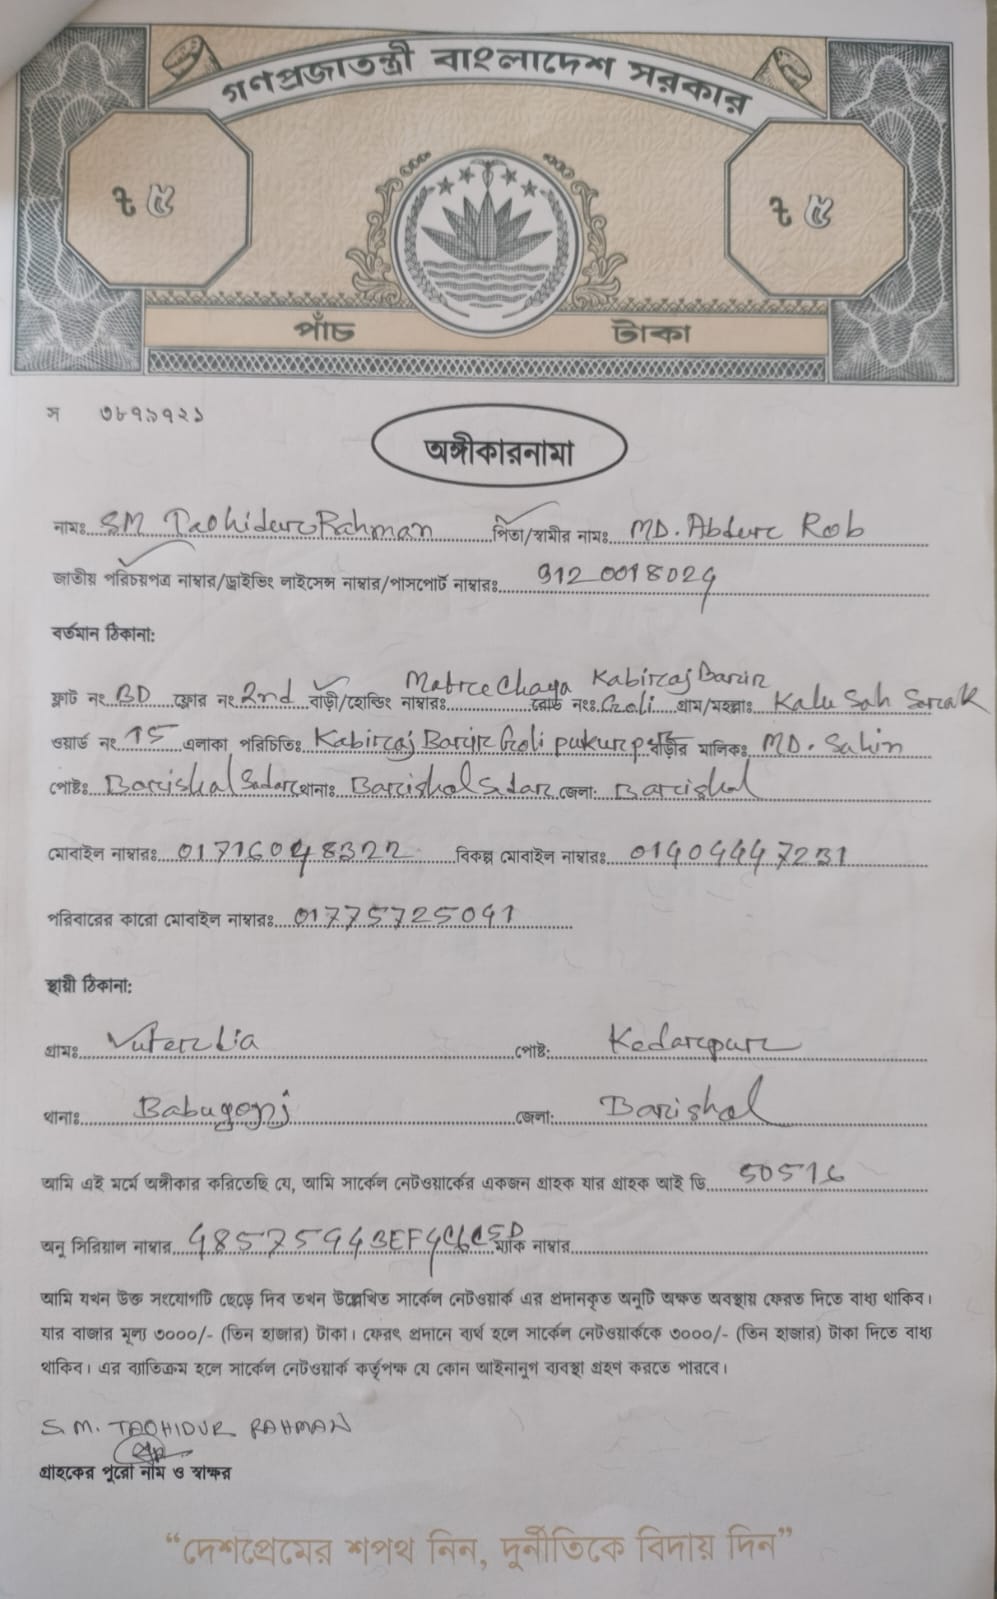 গণপ্রজাতন্ত্রী বাংলাদেশ সরকার
৳ ৫ ৳ ৫
পাঁচ টাকা
স ৩৮৭১৭২১
অঙ্গীকারনামা
নামঃ SM Taohidur Rahman পিতা/স্বামীর নামঃ MD. Abdur Rob
জাতীয় পরিচয়পত্র নাম্বার/ড্রাইভিং লাইসেন্স নাম্বার/পাসপোর্ট নাম্বারঃ 9120018024
বর্তমান ঠিকানা:
ফ্লাট নং BD ফ্লোর নং 2nd বাড়ী/হোল্ডিং নাম্বারঃ Matre Chaya রোড নংঃ Kabiraj Barir Goli গ্রাম/মহল্লাঃ Kalu Sah Sarak
ওয়ার্ড নং 15 এলাকা পরিচিতিঃ Kabiraj Barir Goli pukurpar বাড়ীর মালিকঃ MD. Sahin
পোষ্টঃ Barishal Sadar থানাঃ Barishal Sadar জেলা: Barishal
মোবাইল নাম্বারঃ 01716048322 বিকল্প মোবাইল নাম্বারঃ 01404447231
পরিবারের কারো মোবাইল নাম্বারঃ 01775725041
স্থায়ী ঠিকানা:
গ্রামঃ পোষ্ট: Kedarpur
থানাঃ Babugonj জেলা: Barishal
আমি এই মর্মে অঙ্গীকার করিতেছি যে, আমি সার্কেল নেটওয়ার্কের একজন গ্রাহক যার গ্রাহক আই ডি 50516
অনু সিরিয়াল নাম্বার 48575943EF4C6C5D ম্যাক নাম্বার
আমি যখন উক্ত সংযোগটি ছেড়ে দিব তখন উল্লেখিত সার্কেল নেটওয়ার্ক এর প্রদানকৃত অনুটি অক্ষত অবস্থায় ফেরত দিতে বাধ্য থাকিব।
যার বাজার মূল্য ৩০০০/- (তিন হাজার) টাকা। ফেরৎ প্রদানে ব্যর্থ হলে সার্কেল নেটওয়ার্ককে ৩০০০/- (তিন হাজার) টাকা দিতে বাধ্য
থাকিব। এর ব্যতিক্রম হলে সার্কেল নেটওয়ার্ক কর্তৃপক্ষ যে কোন আইনানুগ ব্যবস্থা গ্রহণ করতে পারবে।
S.M. TAOHIDUR RAHMAN
গ্রাহকের পুরো নাম ও স্বাক্ষর
“দেশপ্রেমের শপথ নিন, দুর্নীতিকে বিদায় দিন”